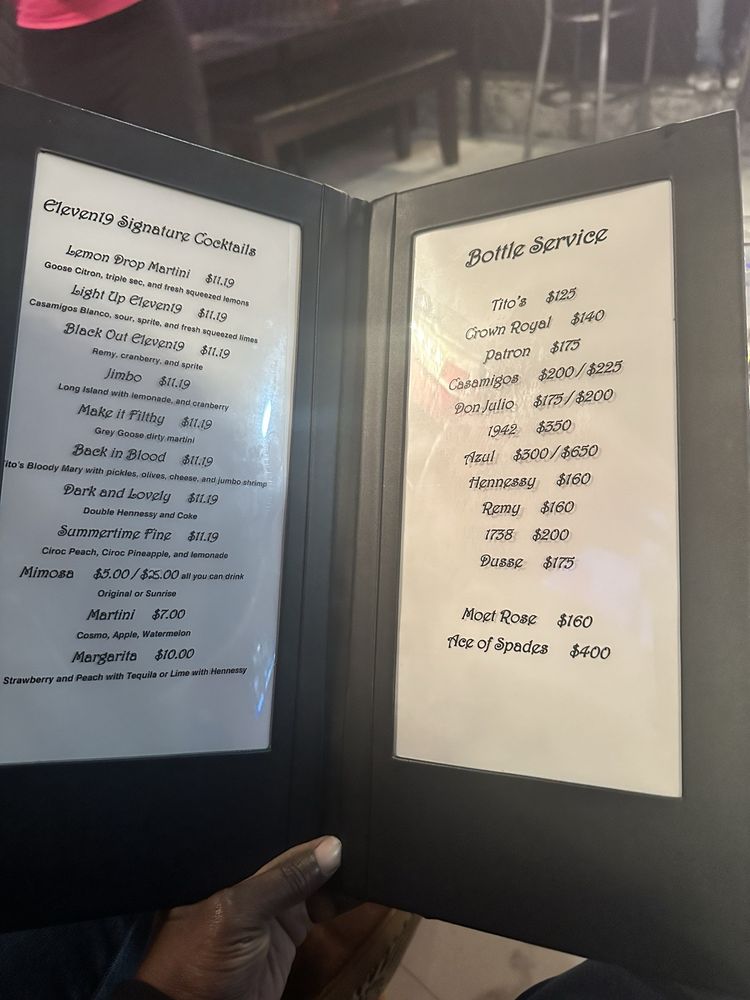 Eleven19 Signature Cocktails
Lemon Drop Martini $11.19
Goose Citron, triple sec, and fresh squeezed lemons
Light Up Eleven19 $11.19
Casamigos Blanco, sour, sprite, and fresh squeezed limes
Black Out Eleven19 $11.19
Remy, cranberry, and sprite
Jimbo $11.19
Long Island with lemonade, and cranberry
Make it Filthy $11.19
Grey Goose dirty martini
Back in Blood $11.19
Tito's Bloody Mary with pickles, olives, cheese, and jumbo shrimp
Dark and Lovely $11.19
Double Hennessy and Coke
Summertime Fine $11.19
Ciroc Peach, Ciroc Pineapple, and lemonade
Mimosa $5.00 / $25.00 all you can drink
Original or Sunrise
Martini $7.00
Cosmo, Apple, Watermelon
Margarita $10.00
Strawberry and Peach with Tequila or Lime with Hennessy
Bottle Service
Tito's $125
Crown Royal $140
Patron $175
Casamigos $200 / $225
Don Julio $175 / $200
1942 $350
Azul $300 / $650
Hennessy $160
Remy $160
1738 $200
Dusse $175
Moet Rose $160
Ace of Spades $400